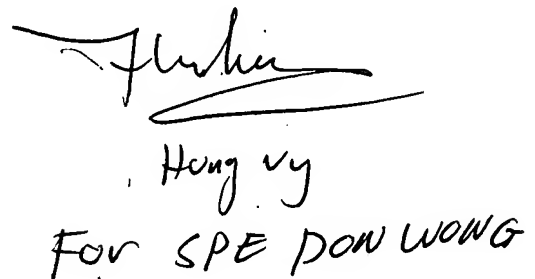 Hung Vy
For SPE DON WONG